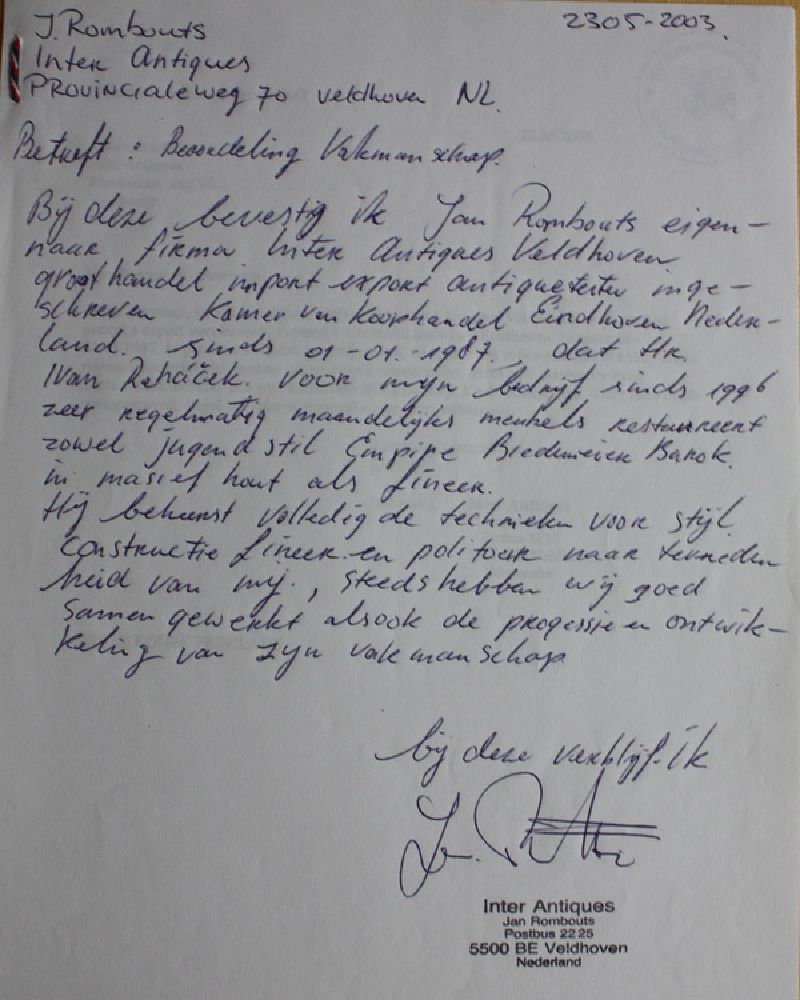 J. Rombouts 2305-2003.
Inter Antiques
PROVINCIALEWEG 70 Veldhoven NL.
Betreft : Beoordeling Vakmanschap.
Bij deze bevestig ik Jan Rombouts eigen-
naar firma Inter Antiques Veldhoven
groothandel import export antiquiteiten inge-
schreven Kamer van Koophandel Eindhoven Neder-
land. sinds 01-01-1987, dat Hr.
Ivan Řeháček. voor mijn bedrijf sinds 1996
zeer regelmatig maandelijks meubels restaureert
zowel jugendstil Empire Biedemeier Barok.
in masief hout als fineer.
Hij beheerst volledig de technieken voor stijl
Constructie fineer en politoer naar tevreden
heid van mij., steeds hebben wij goed
Samen gewerkt alsook de progessie en ontwik-
keling van zijn vakmanschap
bij deze verblijf ik
Inter Antiques
Jan Rombouts
Postbus 2225
5500 BE Veldhoven
Nederland